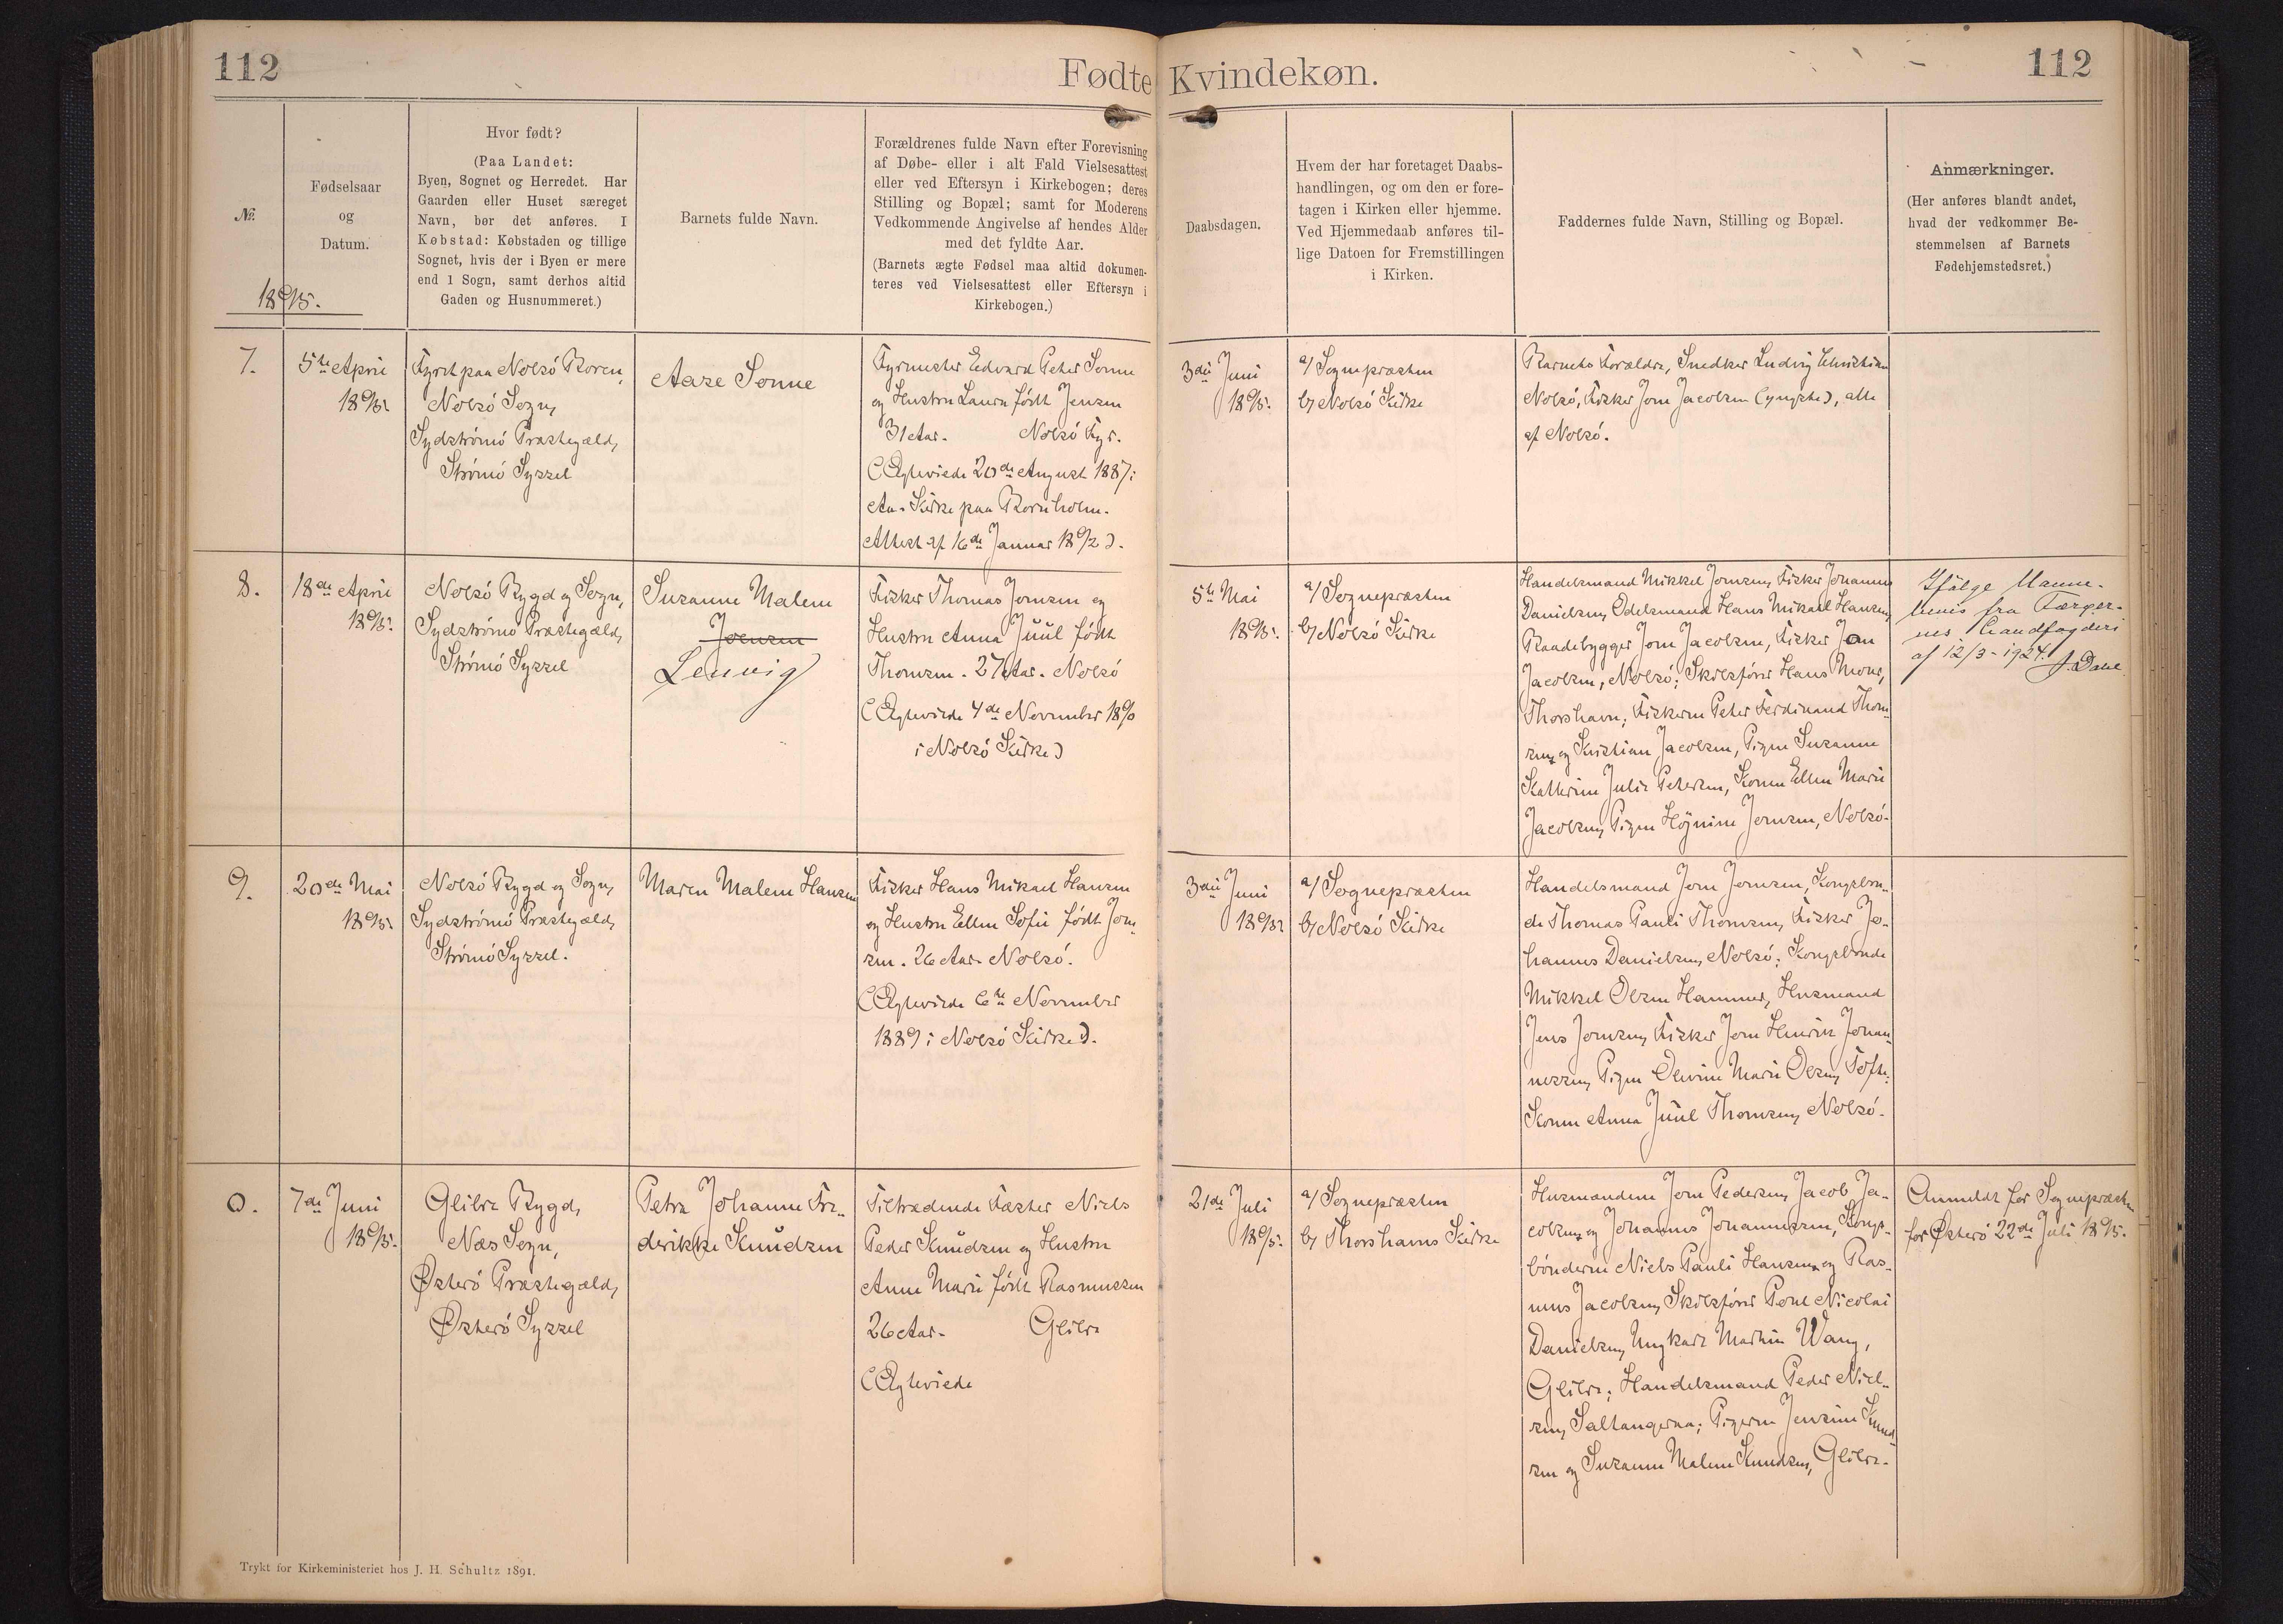 112
Fødte Kvindekøn.
112
№.
1895.
Fødselsaar
og
Datum.
Hvor født?
(Paa Landet:
Byen, Sognet og Herredet. Har
Gaarden eller Huset særeget
Navn, bør det anføres. I
Købstad: Købstaden og tillige
Sognet, hvis der i Byen er mere
end 1 Sogn, samt derhos altid
Gaden og Husnummeret.)
Barnets fulde Navn.
Forældrenes fulde Navn efter Forevisning
af Døbe- eller i alt Fald Vielsesattest
eller ved Eftersyn i Kirkebogen; deres
Stilling og Bopæl; samt for Moderens
Vedkommende Angivelse af hendes Alder
med det fyldte Aar.
(Barnets ægte Fødsel maa altid dokumen-
teres ved Vielsesattest eller Eftersyn i
Kirkebogen.)
Daabsdagen.
Hvem der har foretaget Daabs-
handlingen, og om den er fore-
tagen i Kirken eller hjemme.
Ved Hjemmedaab anføres til-
lige Datoen for Fremstillingen
i Kirken.
Faddernes fulde Navn, Stilling og Bopæl.
Anmærkninger.
(Her anføres blandt andet,
hvad der vedkommer Be-
stemmelsen af Barnets
Fødehjemstedsret.)
7.
5te April
1895.
Fyret paa Nolsö Boren,
Nolsö Sogn,
Sydströmö Præstegæld,
Strömö Syssel
Aase Sonne
Fyrmester Edvard Peter Sonne
og Hustru Laura født Jensen
31 Aar. Nolsö Fyr.
(Ægteviede 20de August 1887 i
Aa-Kirke paa Bornholm.
Attest af 16de Januar 1892).
3die Juni
1895.
a/ Sognepræsten
b/ Nolsö Kirke
Barnets Forældre, Snedker Ludvig Christian
Nolsö, Fisker Jom Jacobsen (yngste), alle
af Nolsö.
8.
18de April
1895.
Nolsö Bygd og Sogn,
Sydströmö Præstegæld,
Strömö Syssel
Susanne Malene
Joensen
Lenvig
Fisker Thomas Joensen og
Hustru Anna Juul født
Thomsen. 27 Aar. Nolsö
(Ægteviede 4de November 1890
i Nolsö Kirke)
5te Mai
1895.
a/ Sognepræsten
b/ Nolsö Kirke
Handelsmand Mikkel Joensen, Fisker Johannes
Danielsen, Odelsmand Hans Mikael Hansen,
Baadebygger Jom Jacobsen, Fisker Jom
Jacobsen, Nolsö; Skolefører Hans Mohr,
Thorshavn; Fiskerne Peter Ferdinand Thom-
sen og Kristian Jacobsen, Pigen Susanne
Kathrine Julie Petersen, Konen Ellen Marie
Jacobsen, Pigen Højnine Joensen, Nolsö.
Ifølge Navne-
bevis fra Færøer-
nes Landfogderi
af 12/3-1924. J. Dahl
9.
20de Mai
1895.
Nolsö Bygd og Sogn,
Sydströmö Præstegæld,
Strömö Syssel.
Maren Malene Hansen
Fisker Hans Mikael Hansen
og Hustru Ellen Sofie født Joen-
sen. 26 Aar. Nolsö.
(Ægteviede 6te November
1889 i Nolsö Kirke).
3die Juni
1895.
a/ Sognepræsten
b/ Nolsö Kirke
Handelsmand Joen Joensen, Kongsbon-
de Thomas Pauli Thomsen, Fisker Jo-
hannes Danielsen, Nolsö; Kongsbonde
Mikkel Olsen Hammer, Husmand
Jens Joensen, Fisker Joen Henrik Johan-
nessen, Pigen Olevine Marie Olsen, Tofte;
Konen Anna Juul Thomsen, Nolsö.
0.
7de Juni
1895.
Glibre Bygd,
Næs Sogn,
Østerö Præstegæld,
Østerö Syssel
Petra Johanne Fre-
derikke Knudsen
Tiltrædende Fæster Niels
Peder Knudsen og Hustru
Anne Marie født Rasmussen
26 Aar. Glibre
(Ægteviede
21de Juli
1895.
a/ Sognepræsten
b/ Thorshavns Kirke
Husmændene Joen Pedersen, Jacob Ja-
cobsen og Johannes Johannessen, Kongs-
bönderne Niels Pauli Hansen og Ras-
mus Jacobsen, Skolefører Poul Nicolai
Danielsen, Ungkarl Martin Wang,
Glibre; Handelsmand Peder Niel-
sen, Saltangeraa; Pigerne Jensine Knud-
sen og Susanne Malene Knudsen, Glibre.
Anmeldt for Sognepræsten
for Østerö 22de Juli 1895.
Trykt for Kirkeministeriet hos J. H. Schultz 1891.